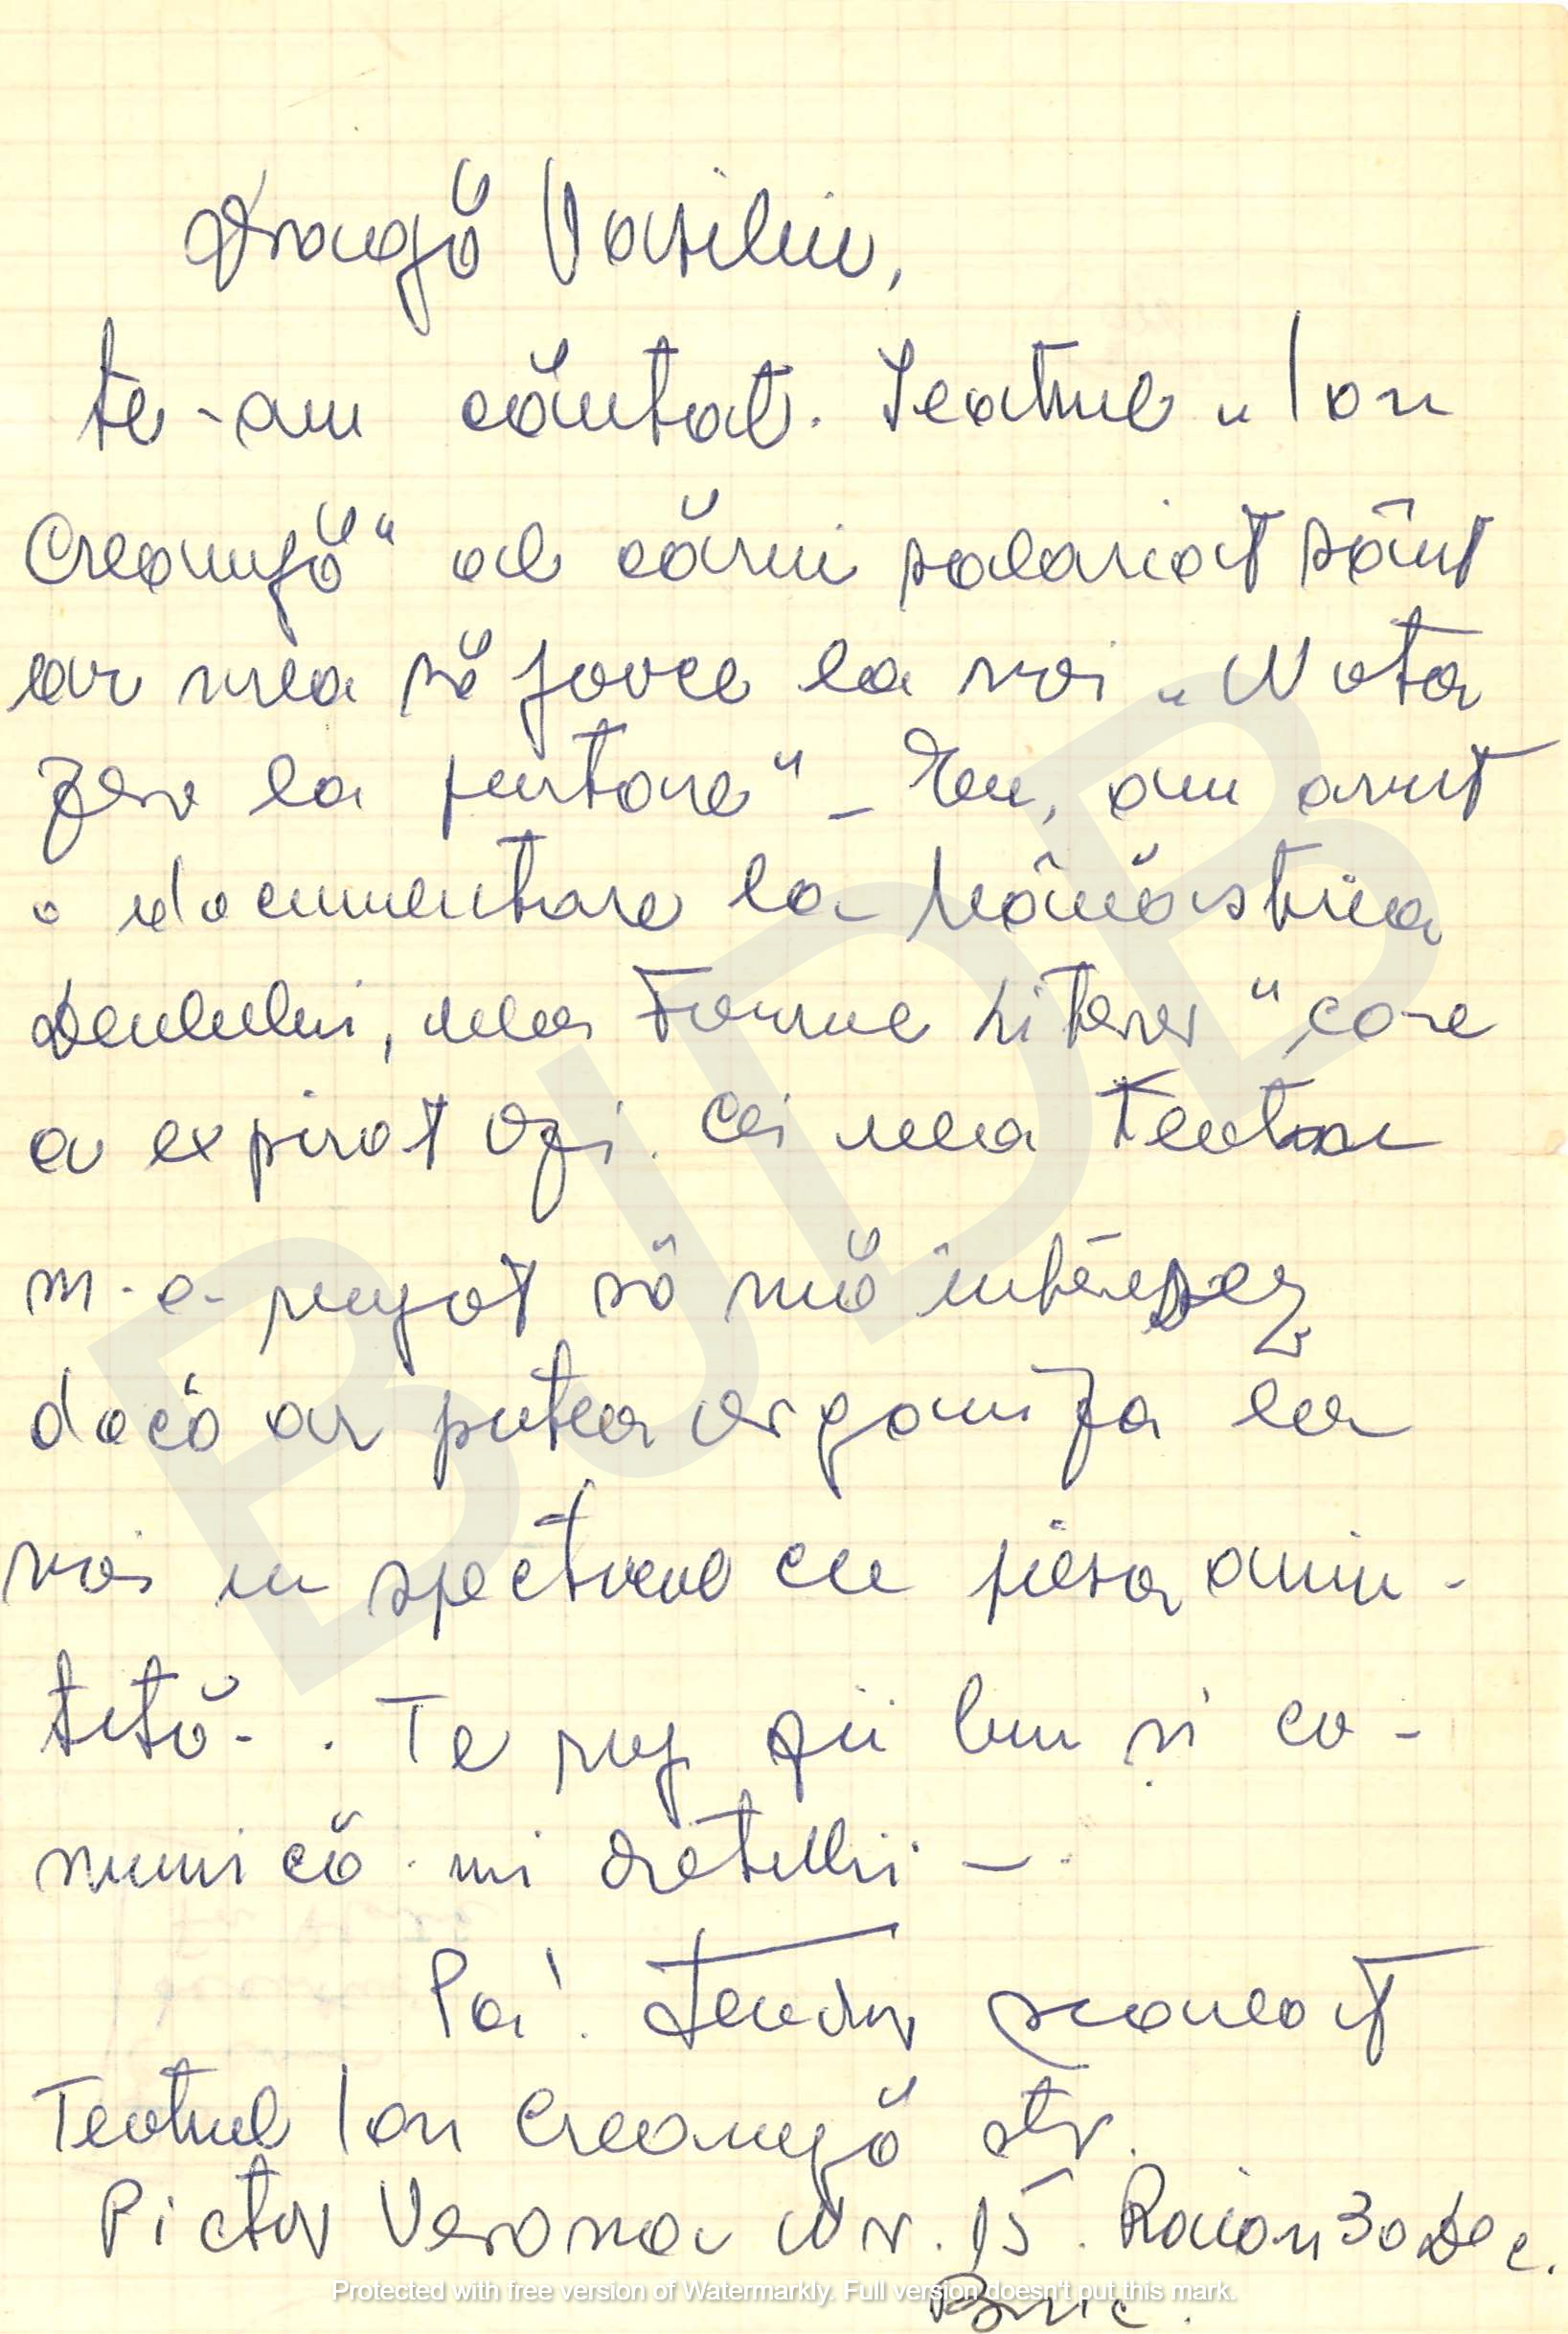 Dragă Vasiliu,
te-am căutat. Teatrul „Ion
Creangă" al cărui salariat sânt
ar vrea să joace la voi „Nota
zero la purtare" – Eu, am avut
o documentare la Mănăstirea
Dealului, via Fonul Literar", care
a expirat ozi. Cei dela Teatru
m-a rugat să mă interesez
dacă ar putea organiza la
voi un spectacol cu piesa amin-
tită. . Te rog fii bun și co-
munică-mi detalii –.
Pa! Tudor
Teatrul Ion Creangă str.
Pictor Verona Nr. 15. Raion 30 Dec.
Buc.
BJDB
Protected with free version of Watermarkly. Full version doesn't put this mark.